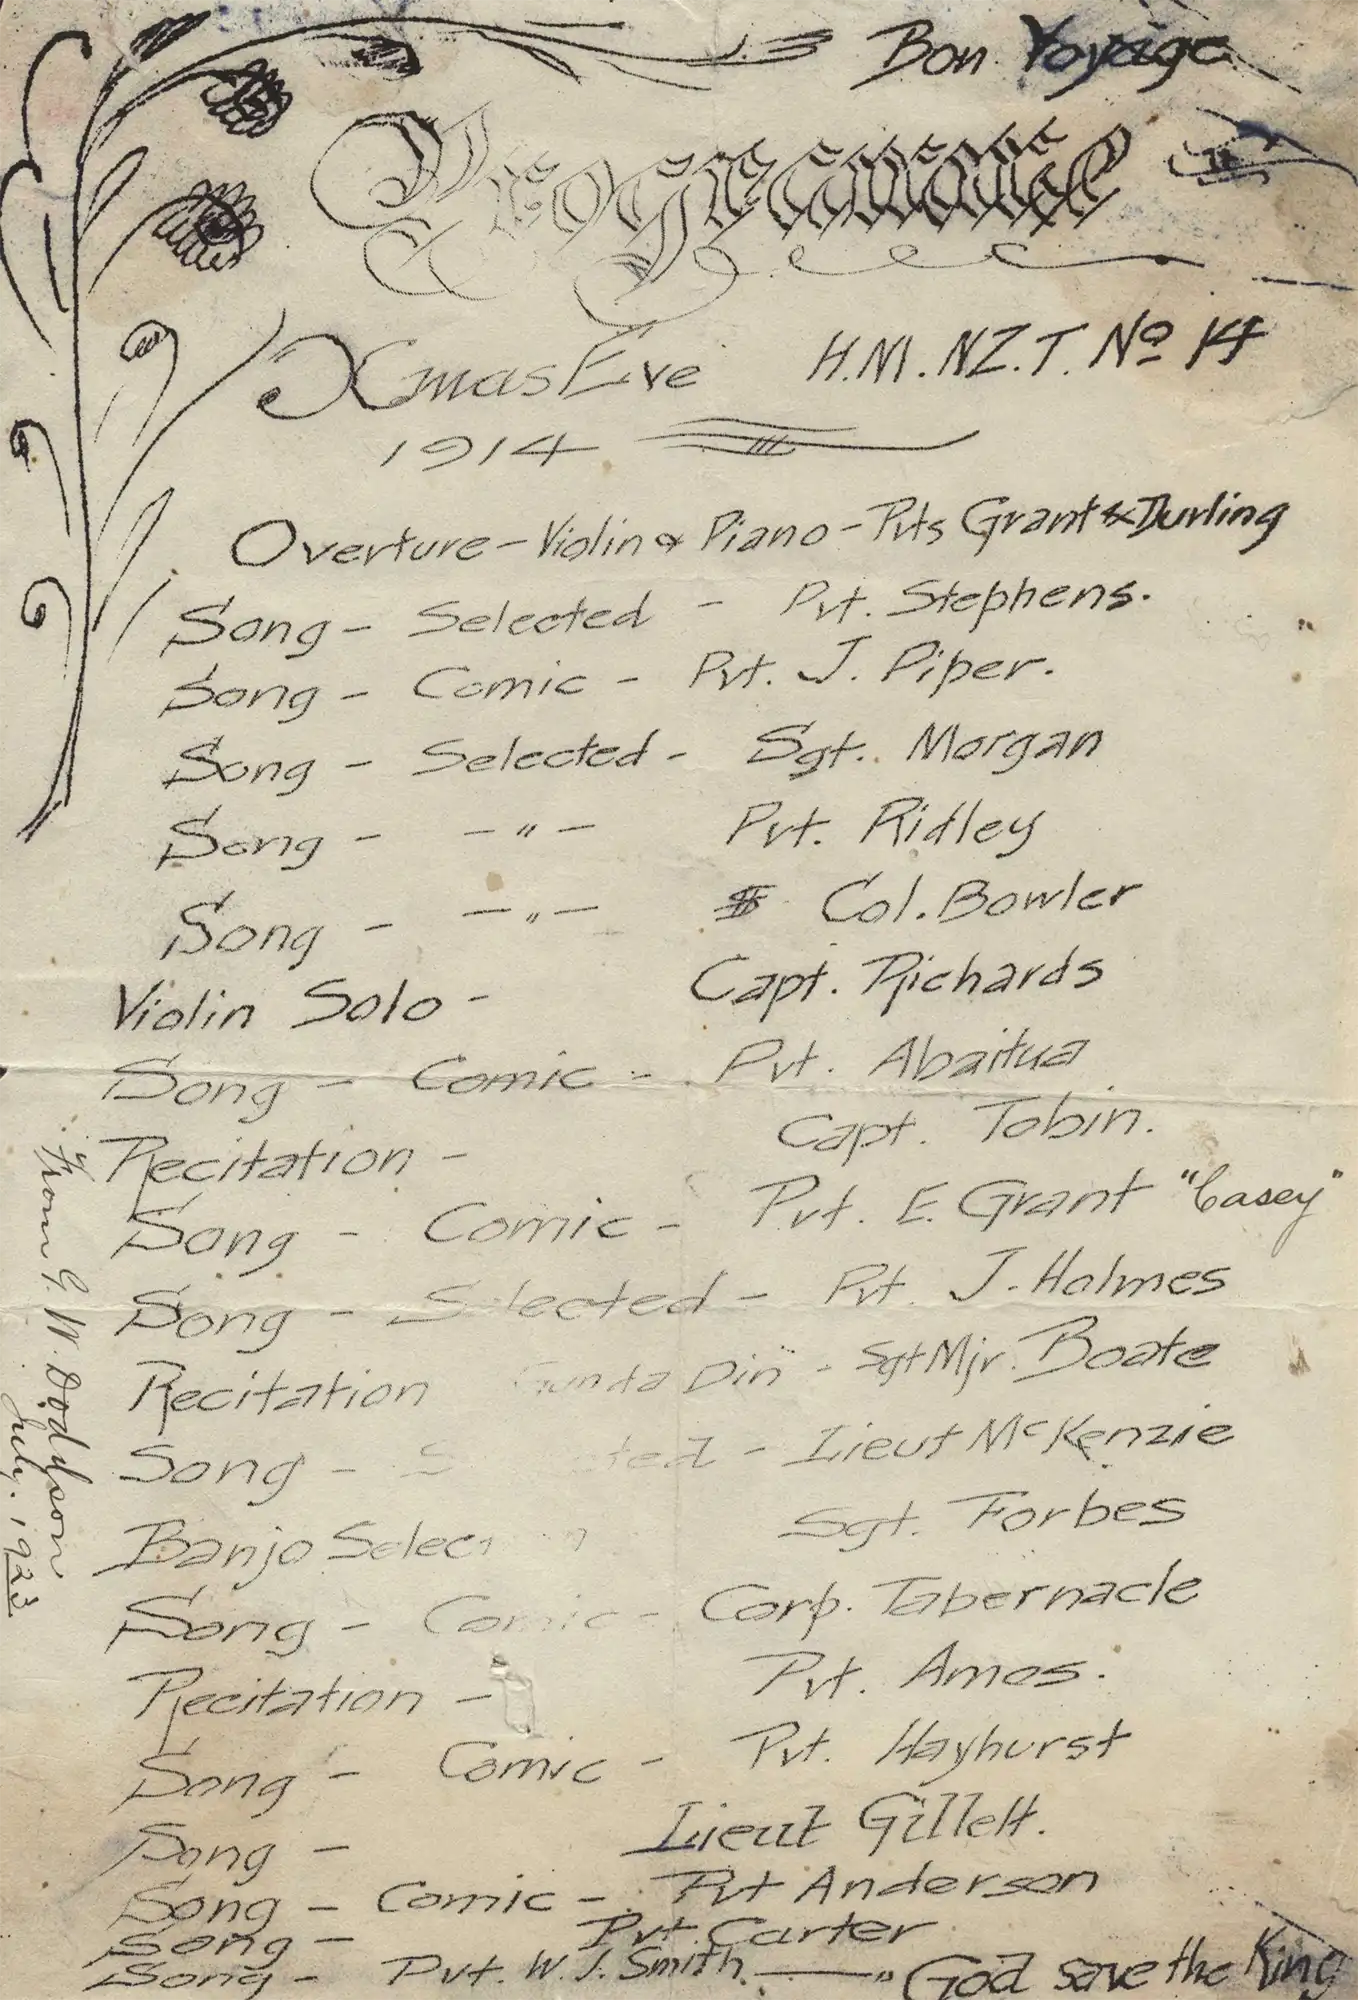 Bon Voyage
Programme
Xmas Eve H.M.NZ.T. No 14
1914
Overture - Violin & Piano - Pvts Grant & Durling
Song - Selected - Pvt. Stephens.
Song - Comic - Pvt. J. Piper.
Song - Selected - Sgt. Morgan
Song - - " - Pvt. Ridley
Song - - " - Col. Bowler
Violin Solo - Capt. Richards
Song - Comic - Pvt. Abaitua
Recitation - Capt. Tobin.
Song - Comic - Pvt. E. Grant "Casey"
Song - Selected - Pvt J. Holmes
Recitation Gunda Din" - Sgt Mjr. Boate
Song - - Lieut McKenzie
Banjo Sgt. Forbes
Song - Comic - Corp. Tabernacle
Recitation - Pvt. Amos.
Song - Comic - Pvt. Hayhurst
Song - Lieut Gillett.
Song - Comic - Pvt Anderson
Song - Pvt. Carter
Song - Pvt. W. J. Smith. — " God save the King
From G. W. Dodson
July. 1923